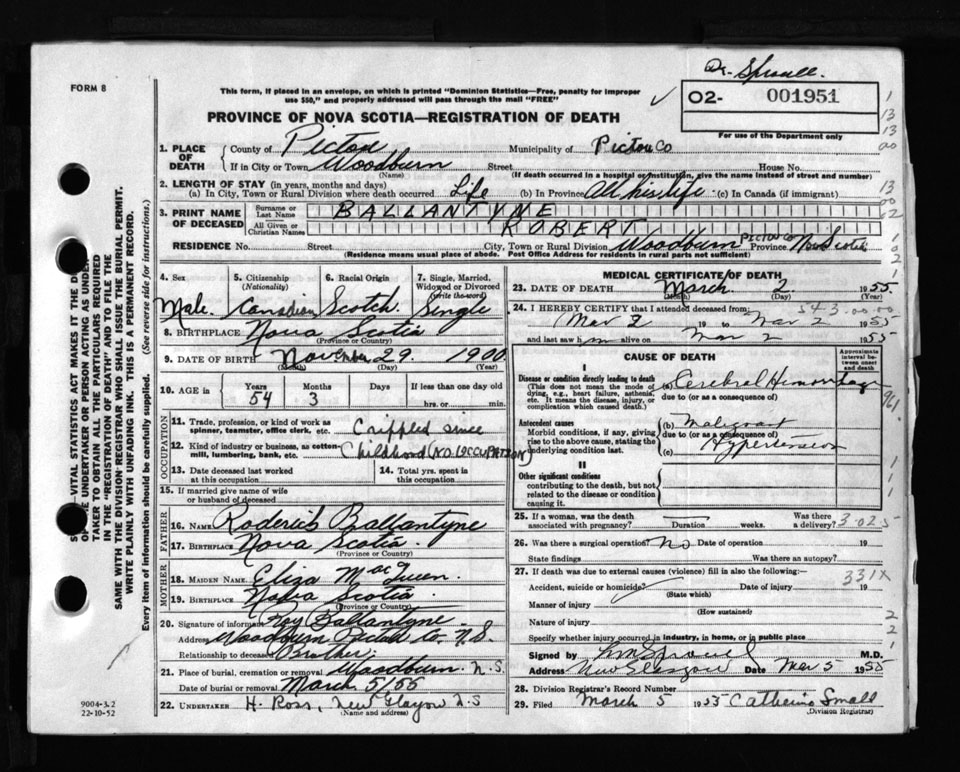 Dr. Sproull.
FORM 8
This form, if placed in an envelope, on which is printed "Dominion Statistics—Free, penalty for improper use $50," and properly addressed will pass through the mail "FREE"
O2- 001951
For use of the Department only
PROVINCE OF NOVA SCOTIA—REGISTRATION OF DEATH
1. PLACE OF DEATH
County of Pictou Municipality of Pictou Co
If in City or Town Woodburn Street House No.
(Name) (If death occurred in a hospital or institution, give the name instead of street and number)
2. LENGTH OF STAY (in years, months and days)
(a) In City, Town or Rural Division where death occurred Life (b) In Province All his life (c) In Canada (if immigrant)
3. PRINT NAME OF DECEASED
Surname or Last Name BALLANTYNE
All Given or Christian Names ROBERT
RESIDENCE No. Street City, Town or Rural Division Woodburn PICTOU CO Province Nova Scotia
(Residence means usual place of abode. Post Office Address for residents in rural parts not sufficient)
4. Sex Male.
5. Citizenship (Nationality) Canadian
6. Racial Origin Scotch.
7. Single, Married, Widowed or Divorced (Write the word) Single
8. BIRTHPLACE Nova Scotia
(Province or Country)
9. DATE OF BIRTH November 29. 1900
(Month) (Day) (Year)
10. AGE in Years 54 Months 3 Days If less than one day old hrs. or min.
OCCUPATION
11. Trade, profession, or kind of work as spinner, teamster, office clerk, etc. Crippled since
12. Kind of industry or business, as cotton-mill, lumbering, bank, etc. Childhood (NO OCCUPATION)
13. Date deceased last worked at this occupation
14. Total yrs. spent in this occupation
15. If married give name of wife or husband of deceased
FATHER
16. NAME Roderick Ballantyne
17. BIRTHPLACE Nova Scotia.
(Province or Country)
MOTHER
18. MAIDEN NAME Eliza MacQueen.
19. BIRTHPLACE Nova Scotia
(Province or Country)
20. Signature of informant Roy Ballantyne
Address Woodburn Pictou Co. N.S.
Relationship to deceased Brother.
21. Place of burial, cremation or removal Woodburn. N.S.
Date of burial or removal March 5/55
22. UNDERTAKER H. Ross, New Glasgow N.S
(Name and address)
MEDICAL CERTIFICATE OF DEATH
23. DATE OF DEATH March 2. 1955
(Month) (Day) (Year)
543.00.00
24. I HEREBY CERTIFY that I attended deceased from:
Mar 2 19 to Mar 2 1955
and last saw him alive on Mar 2 1955
CAUSE OF DEATH
Approximate interval between onset and death
I
Disease or condition directly leading to death
(This does not mean the mode of dying, e.g., heart failure, asthenia, etc. It means the disease, injury, or complication which caused death.)
(a) Cerebral Hemorrhage
due to (or as a consequence of)
Antecedent causes
Morbid conditions, if any, giving rise to the above cause, stating the underlying condition last.
(b) Malignant
due to (or as a consequence of)
(c) Hypertension
II
Other significant conditions
contributing to the death, but not related to the disease or condition causing it
25. If a woman, was the death associated with pregnancy? Duration Was there a delivery? 3.02.5
26. Was there a surgical operation? No Date of operation 19
State findings Was there an autopsy?
27. If death was due to external causes (violence) fill in also the following:— 331X
Accident, suicide or homicide? Date of injury 19
(State which)
Manner of injury
(How sustained)
Nature of injury
Specify whether injury occurred in industry, in home, or in public place
Signed by M.D.
Address New Glasgow Date Mar 5 1955
28. Division Registrar's Record Number
29. Filed March 5 1955 Catherine Small
(Division Registrar)
9004-3.2
22-10-52
TAKER TO OBTAIN ALL THE PARTICULARS REQUIRED
IN THE "REGISTRATION OF DEATH" AND TO FILE THE
SAME WITH THE DIVISION REGISTRAR WHO SHALL ISSUE THE BURIAL PERMIT.
WRITE PLAINLY WITH UNFADING INK. THIS IS A PERMANENT RECORD.
Every item of information should be carefully supplied. (See reverse side for instructions.)